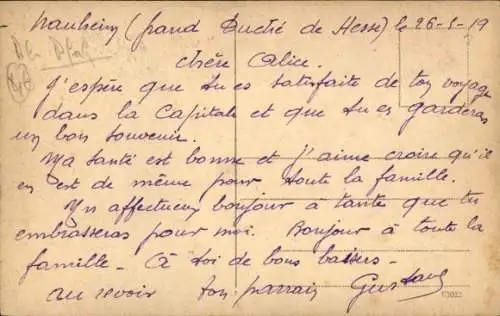 Nauheim (Grand Duché de Hesse) le 26-5-19
Chère Alice.
J'espère que tu es satisfaite de ton voyage
dans la Capitale et que tu en garderas
un bon souvenir.
Ma santé est bonne et j'aime croire qu'il
en est de même pour toute la famille.
Un affectueux bonjour à tante que tu
embrasseras pour moi. Bonjour à toute la
famille - À toi de bons baisers -
au revoir ton parrain Gustave